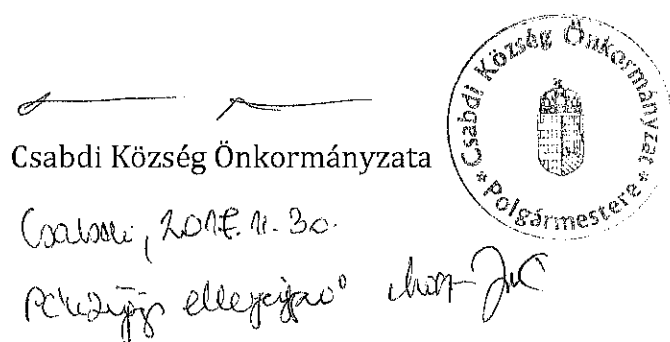 Csabdi Község Önkormányzata
Csabdi Község Önkormányzat
* Polgármestere *
Csabdi, 2017. 11. 30.
Pénzügyi ellenjegyző